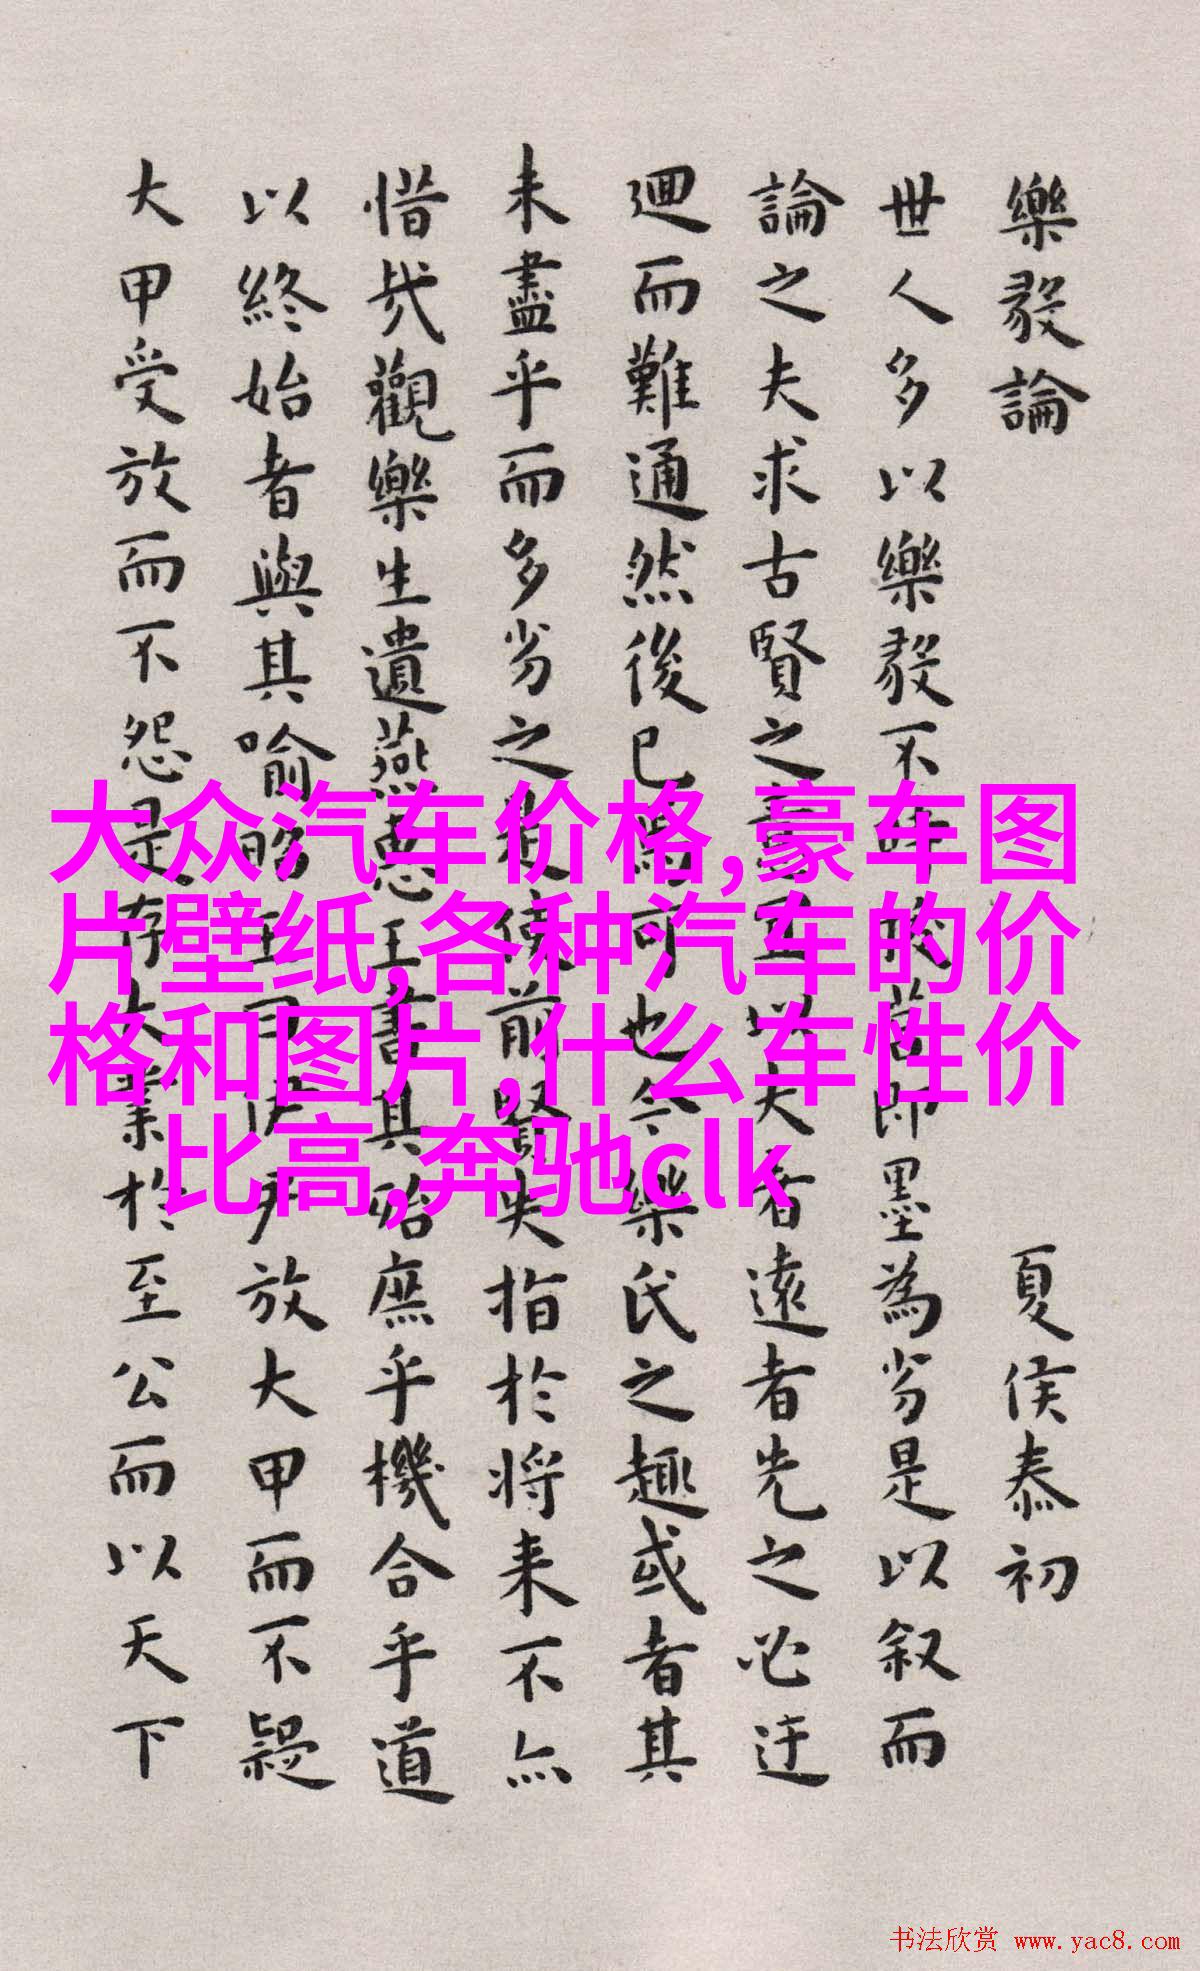 樂毅論 夏侯泰初
世人多以樂毅不時拔莒即墨為劣是以叙而
論之夫求古賢之意宜以大者遠者先之必迂
迴而難通然後已焉可也今樂氏之趣或者其
未盡乎而多劣之是使前賢失指於将来不亦
惜哉觀樂生遺燕惠王書其殆庶乎機合乎道
以終始者與其喻昭王曰伊尹放大甲而不疑
大甲受放而不怨是存大業於至公而以天下
大众汽车价格,豪车图
片壁纸,各种汽车的价
格和图片,什么车性价
比高,奔驰clk
书法欣赏 www.yac8.com